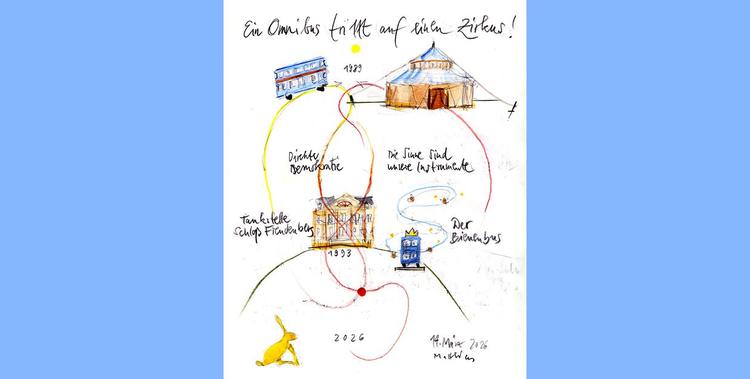 Ein Omnibus trifft auf einen Zirkus!
1989
Direkte
Demokratie
Die Sinne sind
unsere Instrumente
Tankstelle
Schloß Freudenberg
Der
Bienenbus
1993
2026
14. März 2026
Matthias